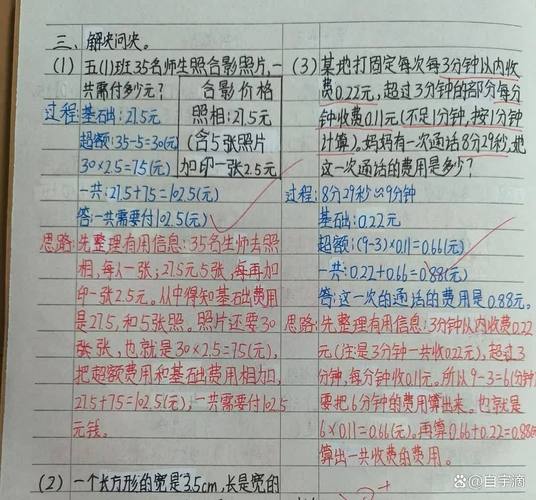 三、解决问决。
(1) 五(1)班35名师生照合影照片,一
共需付多少元?
合影价格
照相:27.5元
(含5张照片
加印一张2.5元
过程:基础出:27.5元
超额:35-5=30(元)
30×2.5=75(元)
一共:27.5+75=102.5(元)
答:一共需要付102.5(元)
思路:先整理有用信息:35名生师去照
相,每人一张;27.5元5张,每再加
印一张2.5元。从中得知基础出费用
是27.5,和5张照。照片还要30
张张,也就是30×2.5=75(元),
把超额费用和基础出费用相加,
27.5+75=102.5(元),一共需要付102.5
元钱。
(2) 一个长方形的宽是3.5cm,长是宽的
(3) 某地打固定每次每3分钟以内收
费0.22元,超过3分钟的部分每分
钟收费0.11元(不足1分钟,按1分钟
计算)。妈妈有一次通话8分29秒,她
这一次通话的费用是多少?
过程:8分29秒≈9分钟
基础出:0.22元
超额:(9-3)×0.11=0.66(元)
一共:0.22+0.66=0.88(元)
答:这一次的通话的费用是0.88元。
思路:先整理有用信息:3分钟以内收费0.22
元(注:是3分钟一共收0.22元),超过3
分钟,每分钟收0.11元。所以9-3=6(分钟)
要把6分钟的费用算出来。也就是
6×0.11=0.66(元)。再算0.66+0.22=0.88(元
算出一共收费的费用。
知乎 @自宇滴